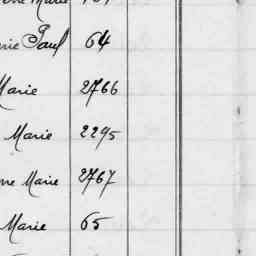 Marie
Paul 64
Marie 2766
Marie 2295
ne Marie 2767
Marie 65